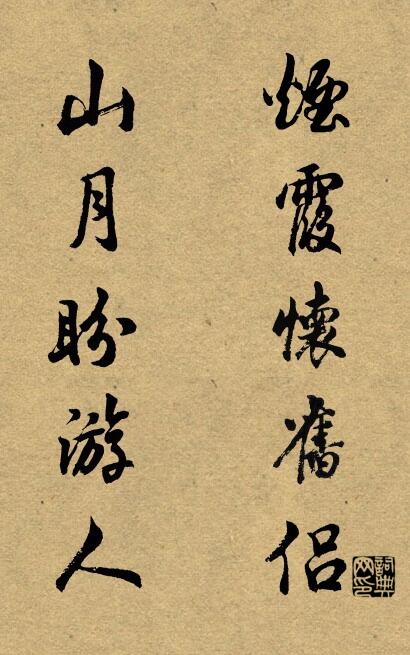 煙霞懷舊侶
山月盼游人
詞典网印